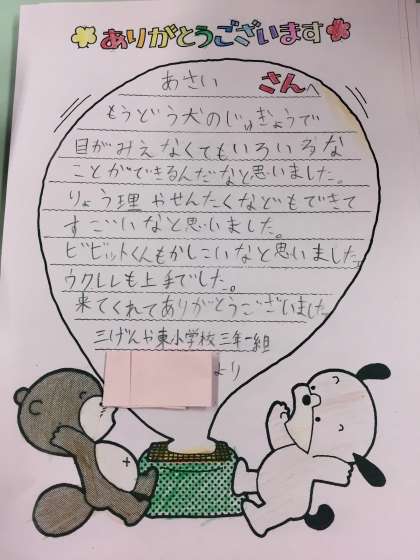 ありがとうございます
あさい さんへ
もうどう犬のじゅぎょうで
目がみえなくてもいろいろな
ことができるんだなと思いました。
りょう理やせんたくなどもできて
すごいなと思いました。
ビビットくんもかしこいなと思いました。
ウクレレも上手でした。
来てくれてありがとうございました
三げんや東小学校三年一組
より